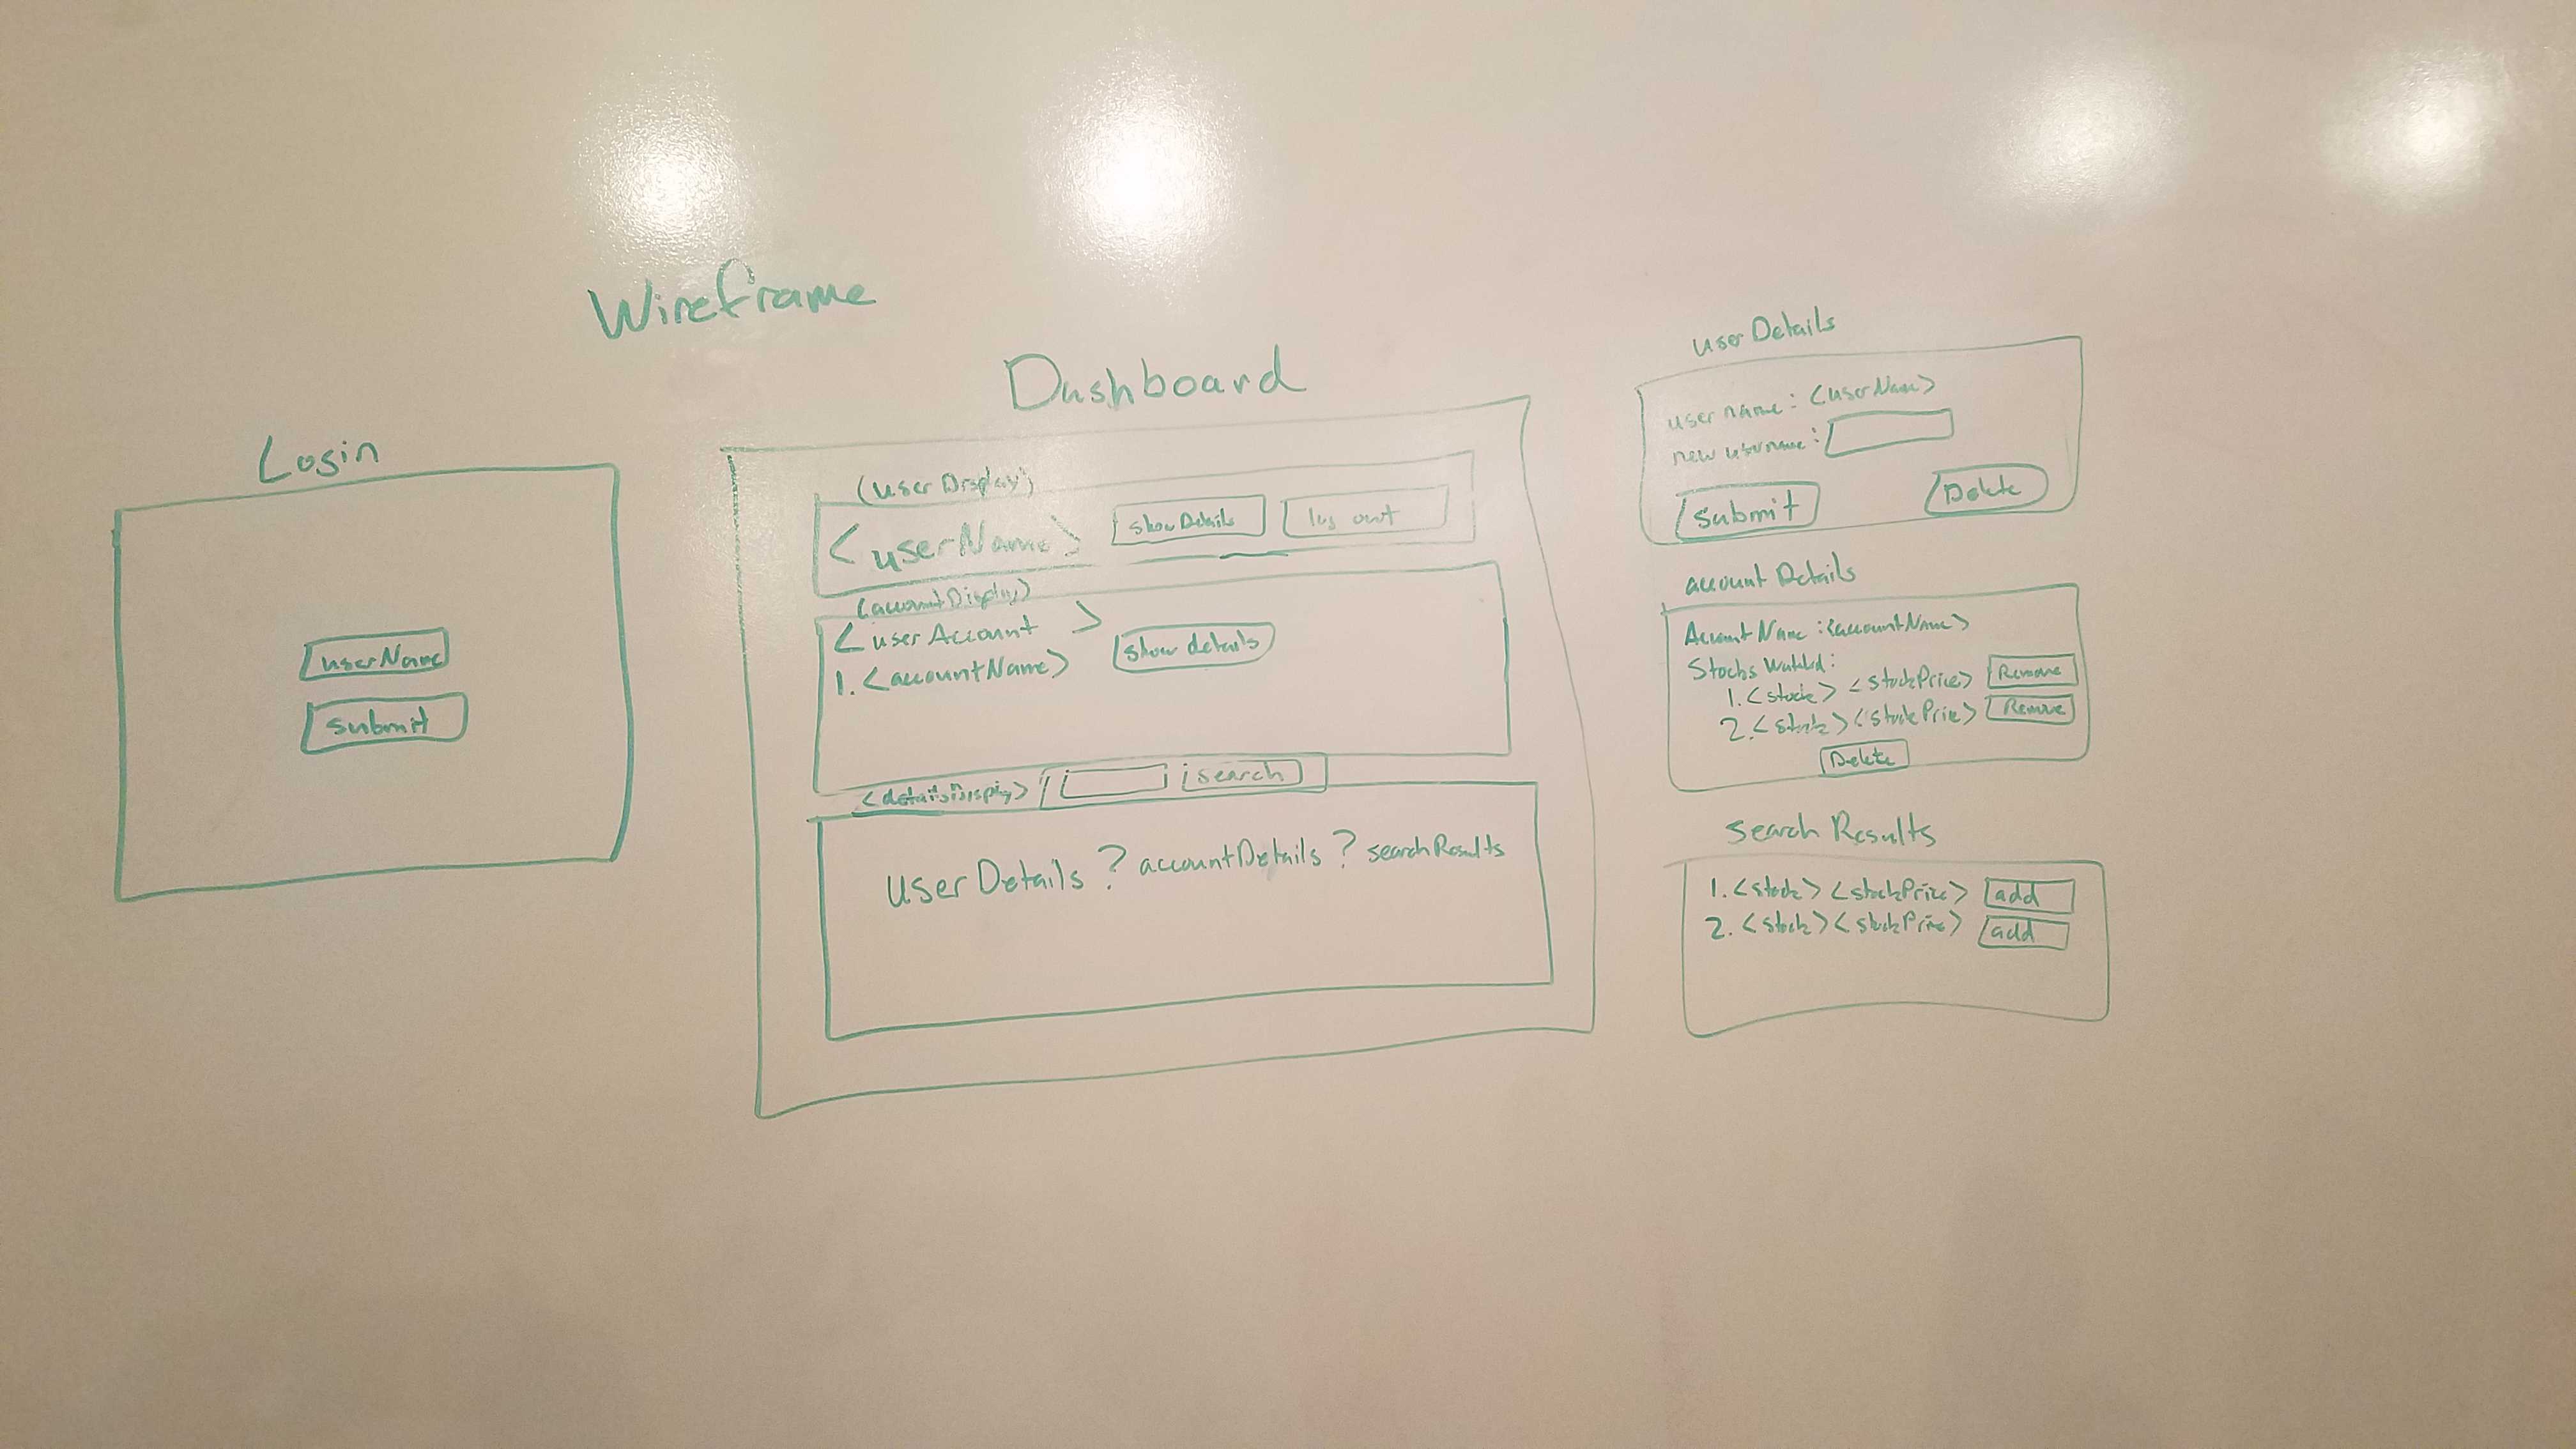 Wireframe
Login
userName
submit
Dashboard
(userDisplay)
<userName> showDetails log out
(accountDisplay)
<userAccount >
1. <accountName> show details
<detailsDisplay> search
userDetails ? accountDetails ? searchResults
userDetails
user name: <userName>
new username:
submit Delete
account Details
Account Name: <accountName>
Stocks Watched:
1. <stock> <stockPrice> Remove
2. <stock> <stockPrice> Remove
Delete
Search Results
1. <stock> <stockPrice> add
2. <stock> <stockPrice> add